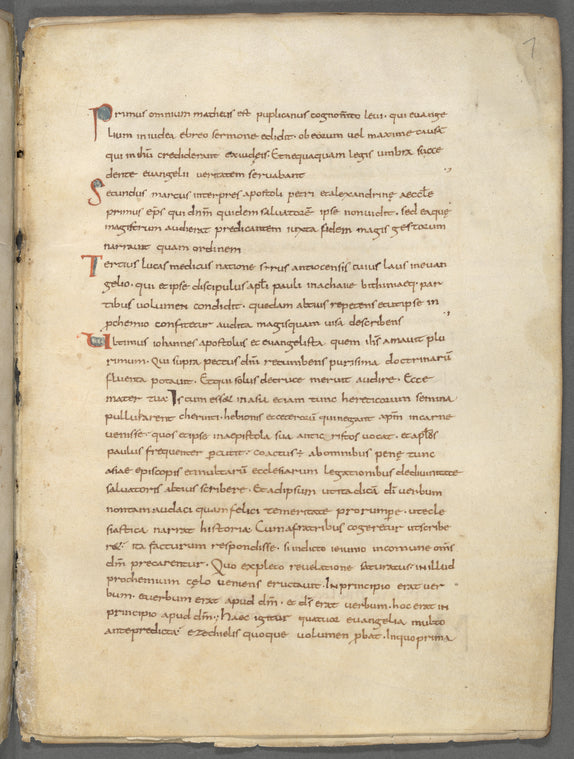 7
Primus omnium matheus est puplicanus cognomto levi · qui evange
lium in iudea ebreo sermone edidit · ob eorum vel maxime causa
qui in ihm crediderant ex iudeis · Et nequaquam legis umbra succe
dente evangelii veritatem servabant
Secundus marcus interpres apostoli petri et alexandrine aeccle
primus eps qui dnm quidem salvatore ipse non vidit · sed ea que
magistrum audierat predicantem iuxta fidem magis gestorum
narravit quam ordinem
Tertius lucas medicus natione sirus antiocensis cuius laus in evan
gelio · qui et ipse discipulus apli pauli in achaiae bithiniaeq; par
tibus volumen condidit · quedam altius repetens et ut ipse in
phemio confitetur audita magis quam visa describens
Ultimus iohannes apostolus et evangelista quem ihs amavit plu
rimum · Qui supra pectus dni recumbens purisima doctrinaru
fluenta potavit · Et qui solus de cruce meruit audire · Ecce
mater tua · Is cum esset in asia etiam tunc hereticorum semina
pullularent cherinti · hebionis et ceterorum qui negant xpm in carne
venisse · quos et ipse in aepistola sua antic ristos vocat · et apls
paulus frequenter pcutit · coactus e ab omnibus pene tunc
asiae episcopis et multaru ecclesiarum legationibus de divinitate
salvatoris altius scribere · Et ad ipsum ut ita dica di verbum
non tam audaci quam felici temeritate prorumpe · ut ecle
siastica narrat historia · Cum a fratribus cogeretur ut scribe
ret · ita facturum respondisse · si indicto ieiunio in comune oms
dm precarentur · Quo expleto revelatione saturatus · in illud
prochemium celo veniens eructavit · In principio erat ver
bum · et verbum erat apud dm · et ds erat verbum · hoc erat in
principio apud dm · Haec igitur quatuor evangelia multo
ante predicta ezechielis quoque volumen pbat · In quo prima